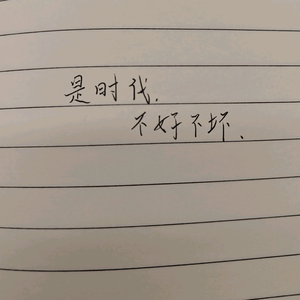 是时代.
不好不坏.